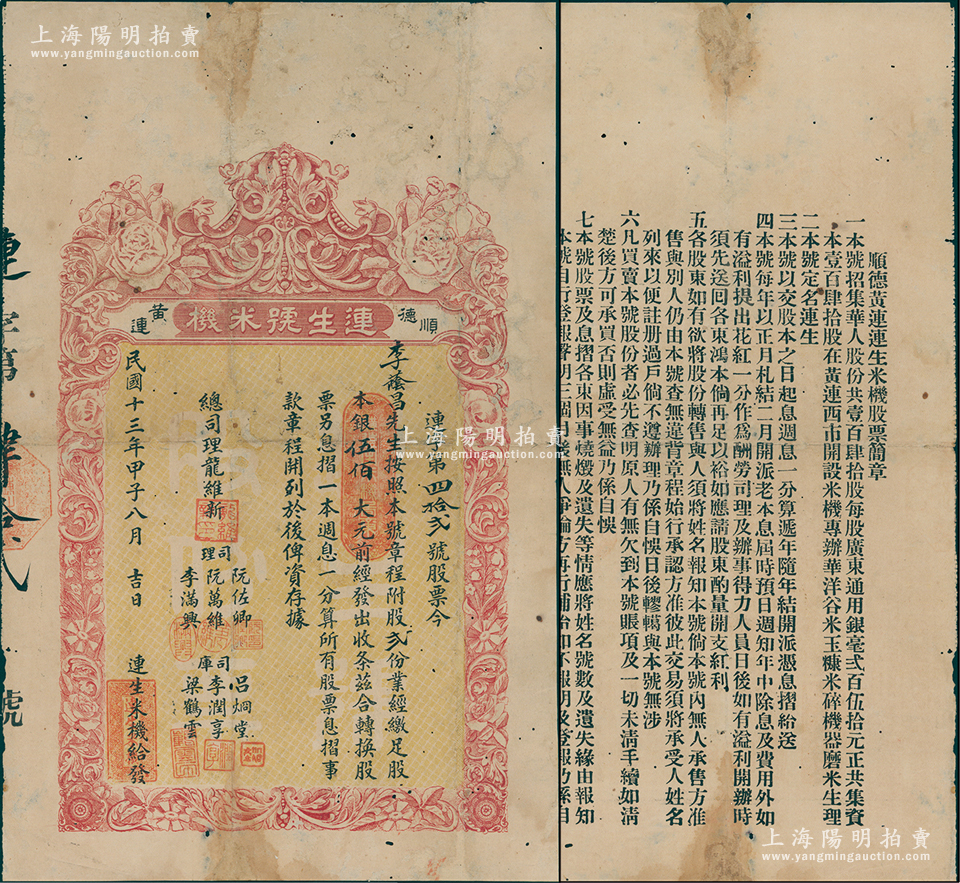 上海陽明拍賣
www.yangmingauction.com
順德
連生號米機
黃連
連字第四拾弍號股票今
李蔭昌先生按照本號章程附股弍份業經繳足股
本銀伍佰大元前經發出收条茲合轉換股
票另息摺一本週息一分算所有股票息摺事
款章程開列於後俾資存據
總司理龍維新
司理
阮佐卿
阮萬維
李滿興
司庫
呂烱堂
李潤享
梁鶴雲
民國十三年甲子八月 吉日 連生米機給發
連字第肆拾弍號
順德黃連連生米機股票簡章
一本號招集華人股份共壹百肆拾股每股廣東通用銀毫弍百伍拾元正共集資
本壹百肆拾股在黃連西市開設米機專辦華洋谷米玉糠米碎機器磨米生理
二本號定名連生
三本號以交股本之日起息週息一分算遞年隨年結開派憑息摺給送
四本號每年以正月札結二月開派老本息屆時預日週知年中除息及費用外如
有溢利提出花紅一分作為酬勞司理及辦事得力人員日後如有溢利開辦時
須先送回各東鴻本倘再足以裕如應請股東酌量開支紅利
五各股東如有欲將股份轉售與人須將姓名報知本號倘本號內無人承售方准
售與別人仍由本號查無違背章程始行承認方准彼此交易須將承受人姓名
列來以便註冊過戶倘不遵辦理乃係自悞日後轇轕與本號無涉
六凡買賣本號股份者必先查明原人有無欠到本號賬項及一切未清手續如清
楚後方可承買否則虛受無益乃係自悞
七本號股票及息摺各東因事燒燬及遺失等情應將姓名號數及遺失緣由報知
本號自行登報聲明三個月後無人爭論方再行補給如不報明及登報乃係自
上海陽明拍賣
www.yangmingauction.com
上海陽明拍賣
www.yangmingauction.com